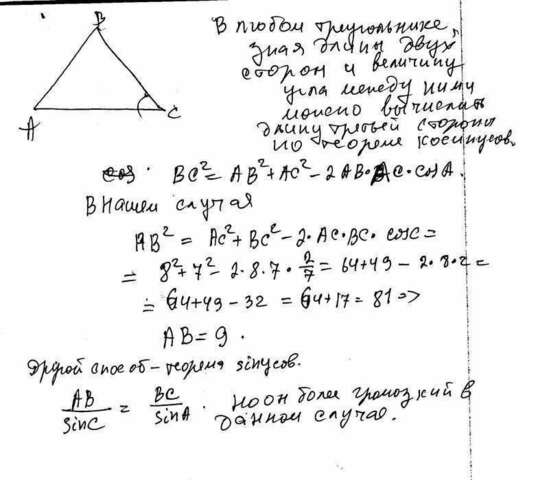 В любом треугольнике,
зная длины двух
сторон и величину
угла между ними
можно вычислить
длину третьей стороны
по теореме косинусов.
B
A
C
BC² = AB² + AC² - 2AB·AC·cosA.
В нашем случая
AB² = AC² + BC² - 2·AC·BC·cosC =
= 8² + 7² - 2·8·7·2/7 = 64+49 - 2·8·2 =
= 64+49-32 = 64+17 = 81 =>
AB = 9.
Другой способ - теорема sinусов.
AB/sinC = BC/sinA. но он более громозкий в
данном случае.